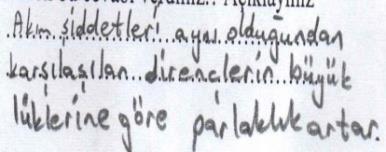 Akım şiddetleri aynı olduğundan
karşılaşılan dirençlerin büyük
lüklerine göre parlaklık artar.